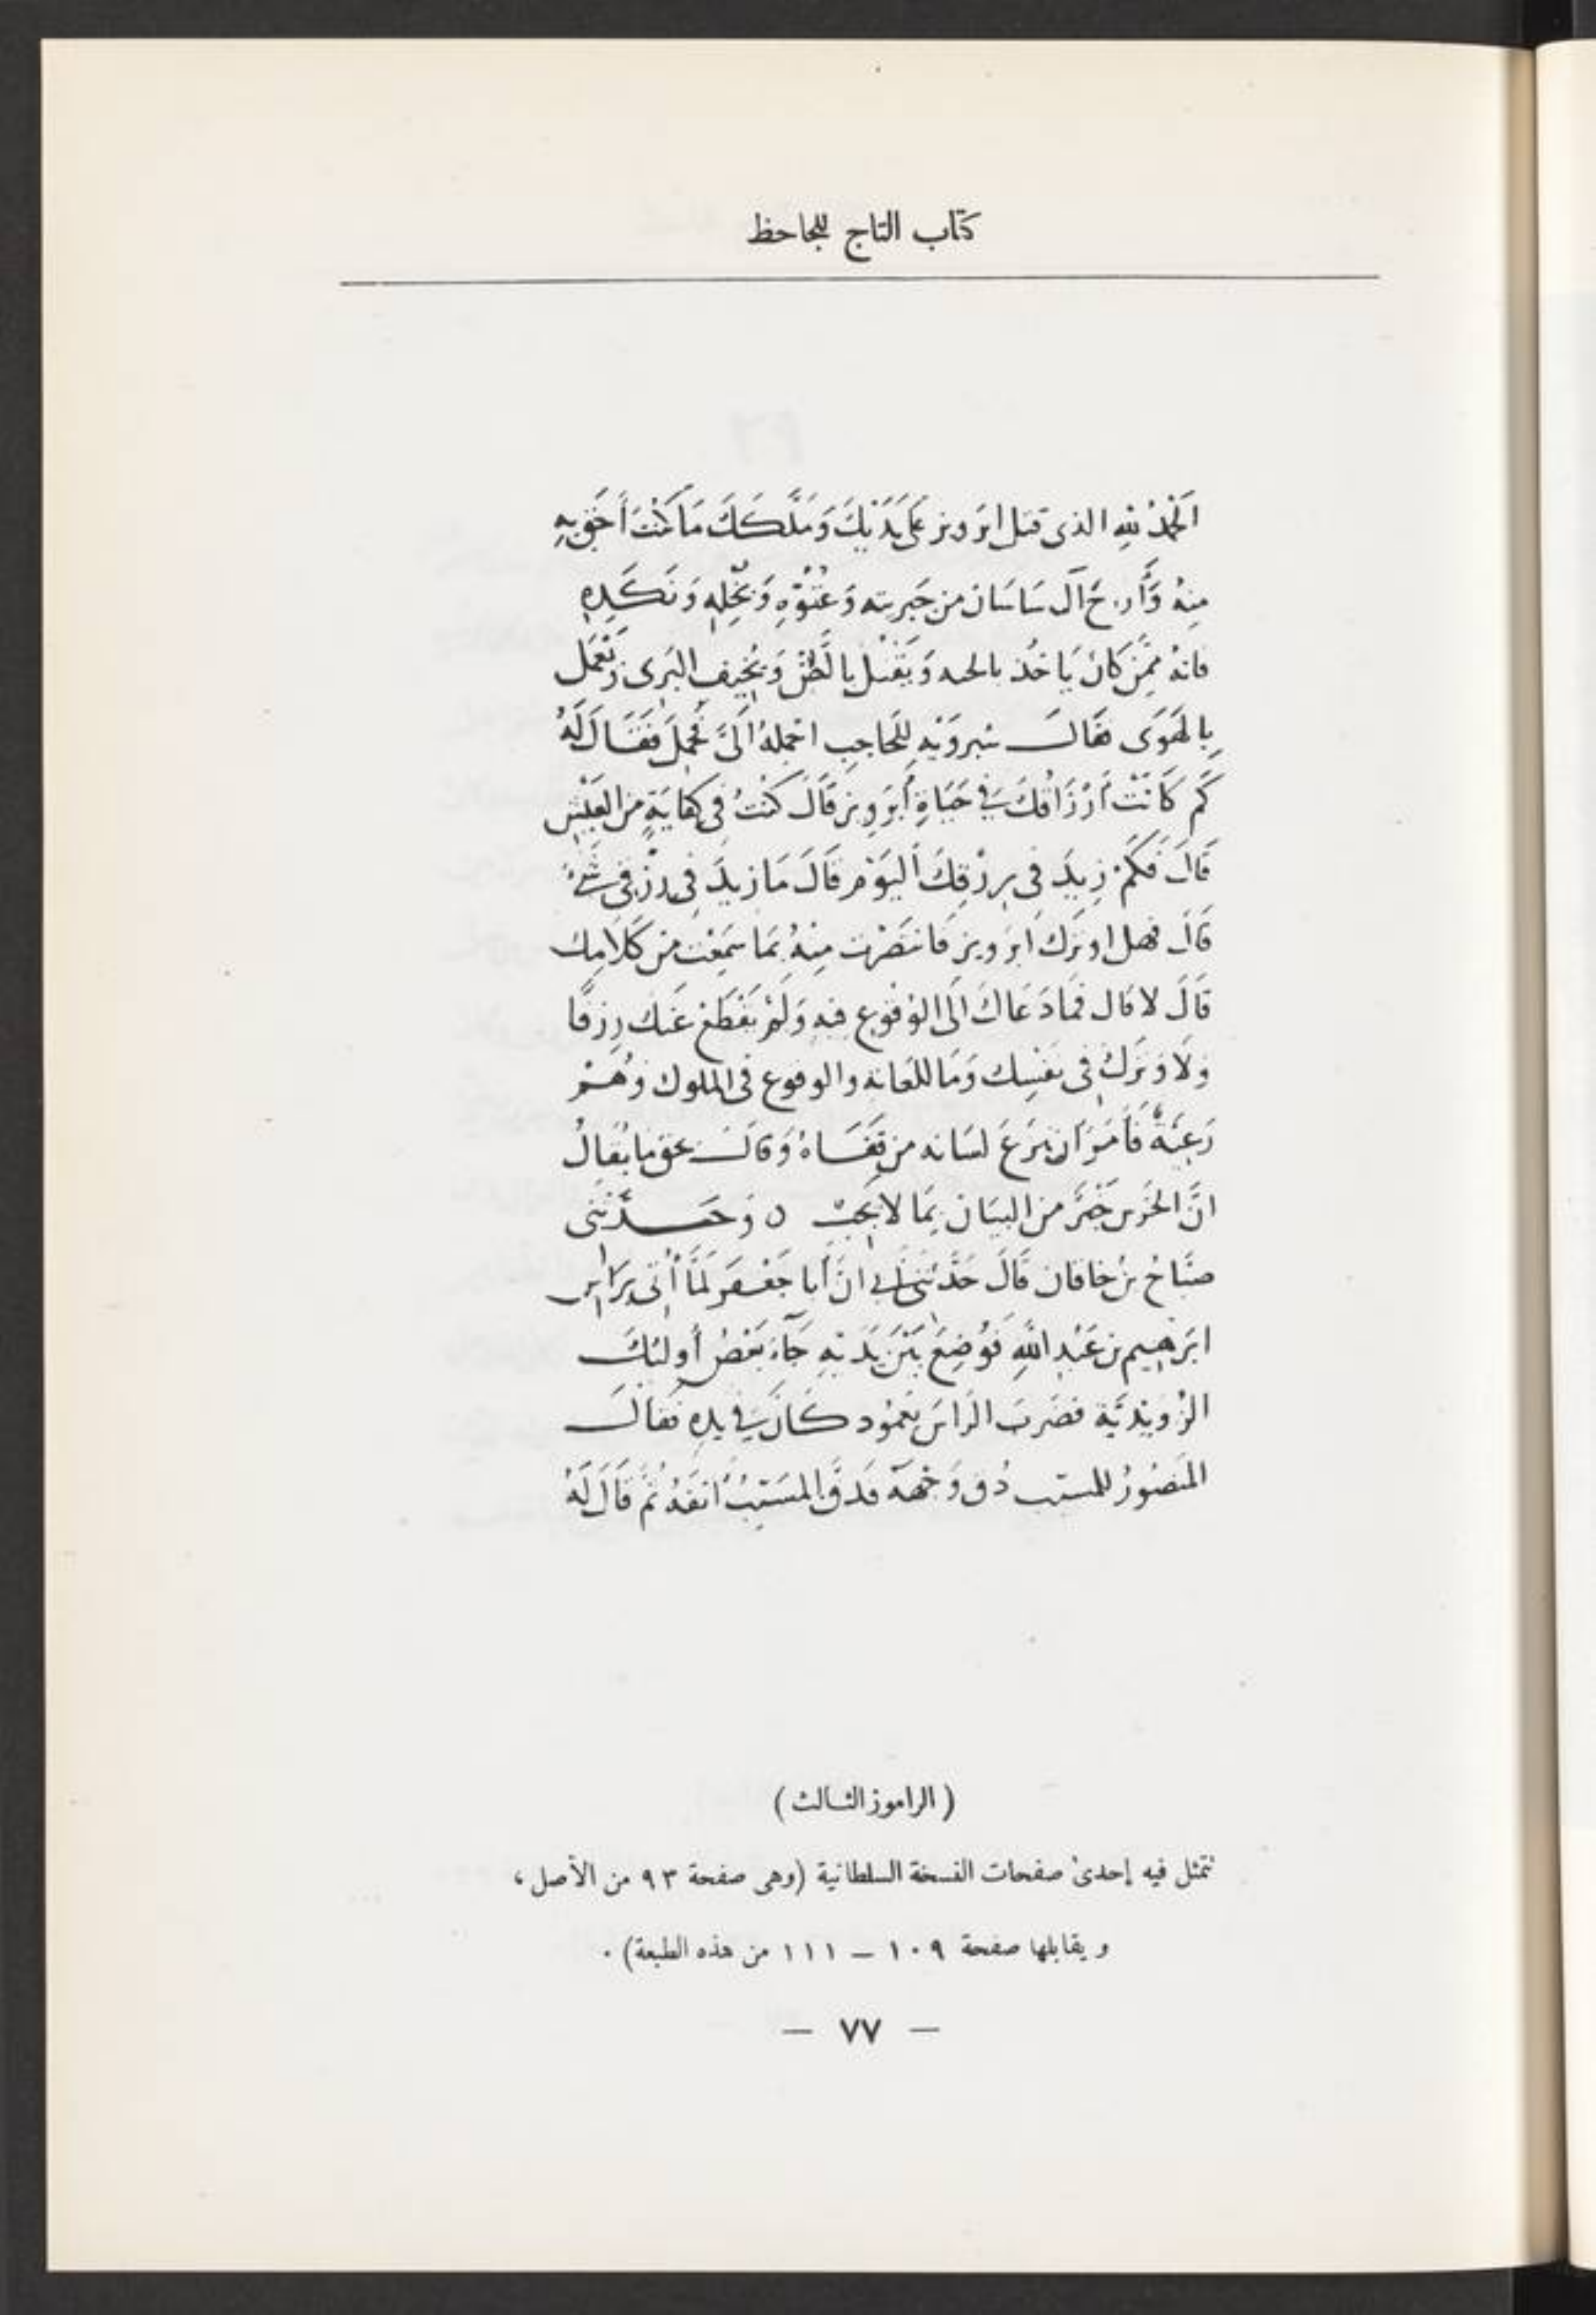 كتاب التاج للجاحظ
اَلحمْدُ للهِ الذى قتل ابَرويز عَلى يَدَيْكَ وَمَلَّكَكَ مَا كُنْتَ أَحَقَّ بِهِ
مِنهُ وَأَراحَ آلَ سَاسَان من جَبريته وَعُتُوِّهِ وَبُخْلِهِ وَنَكَدِهِ
فانهُ مِمَّنْ كَانَ يَاخُذ بالحبه وَيَقْتل بالظَّنِّ وَيُخِيف البَرِى وَيَعْمَل
بِالهَوَى فقَالَ شيروَيْه لِلْحَاجِبِ احْمِلهُ الَىَّ فَحُمِلَ فَقَالَ لَهُ
كَم كَانَتْ أَرْزَاقُكَ فِي حَيَاةِ أَبَرَوِيزَ قَالَ كنْتُ فى كِفايَةٍ من العَيْشِ
قَالَ فَكَمْ زِيدَ فى رِزْقِكَ اليَوْمَ قَالَ مَا زِيدَ فِى رِزْقى شَىْءٌ
قَالَ فهل اوتَرَك ابَرويز فَانتَصَرْت مِنهُ بمَا سَمِعْت مِن كَلَامِك
قَالَ لا قال فمَا دَعَاكَ الَى الوُقُوعِ فيهِ وَلَمْ يَقْطَعْ عَنك رِزقًا
وَلَا وَتَرَكَ فى نفسِك وَمَا للعَامه والوقوع فى الملوك وَهُمْ
رَعِيَةٌ فَأَمَرَ ان يُنزَعَ لسَانه من قَفَاهُ وَقالَ بحَق مَا يُقالُ
انَّ الخرَس خَيْرٌ من البيَان بِمَا لا يَجِبُ ٥ وَحَدَّثَنى
صَبَّاحُ بنُ خاقان قَالَ حَدَّثَنى أَبي انَّ أَبا جَعْفَر لَمَّا أُتِى بِرَاسِ
ابَرهيم بن عَبْدِ اللهِ فَوُضِعَ بَيْنَ يَدَيْهِ جَآءَ بَعْضُ أُولئِكَ
الرَّوَيْدِيَّة فضَرَبَ الرَاسَ بعَمُود كَانَ فِي يدِه فَقالَ
المَنصُورُ للمسَيّب دُق وَجْهَهُ فَدَقَّ المسَيّبُ انفَهُ ثم قَالَ لَهُ
( الراموز الثالث )
تتمثل فيه إحدى صفحات النسخة السلطانية (وهى صفحة ٩٣ من الأصل ،
ويقابلها صفحة ١٠٩ – ١١١ من هذه الطبعة) .
— ٧٧ —